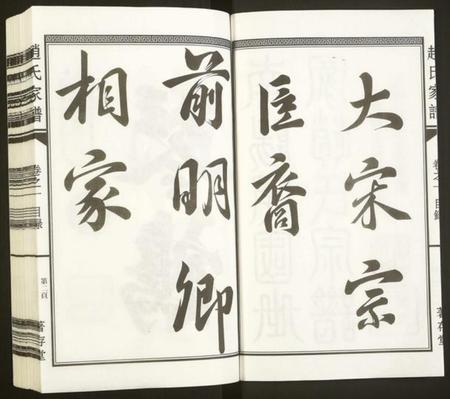 趙氏家譜
卷之一
目錄
著存堂
大宋宗
臣裔
前明卿
相家
趙氏家譜
卷之一
目錄
第二頁
著存堂